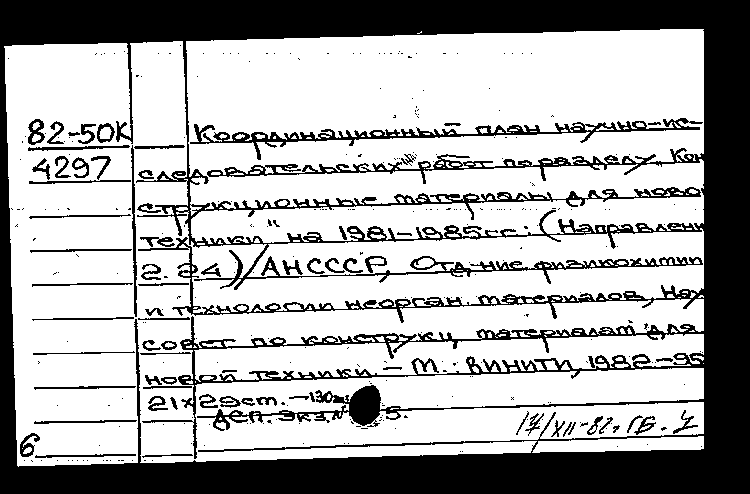 82-50К Координационный план научно-ис-
4297 следовательских работ по разделу „Кон
струкционные материалы для ново
техники" на 1981-1985гг: (Направлени
2.24)/АНСССР, Отд-ние физикохимии
и технологии неорган. материалов, Нау
совет по конструкц. материалам для
новой техники. – М.: ВИНИТИ, 1982.-95
21х29ст. -130экз
ДСП. Экз.№ 5.
17/XII-82. ГБ.
6